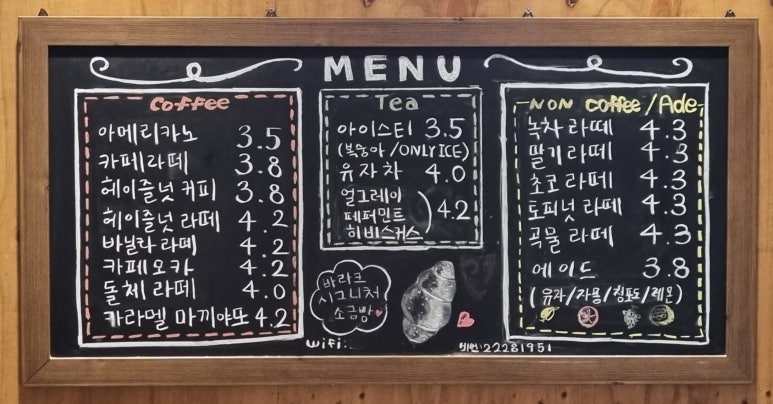 MENU
Coffee
아메리카노 3.5
카페라떼 3.8
헤이즐넛 커피 3.8
헤이즐넛 라떼 4.2
바닐라 라떼 4.2
카페모카 4.2
돌체 라떼 4.0
카라멜 마끼야또 4.2
Tea
아이스티 3.5
(복숭아/ONLY ICE)
유자차 4.0
얼그레이
페퍼민트 4.2
히비스커스
바라크
시그니처
소금빵
wifi:
비번:22281951
NON coffee/Ade
녹차 라떼 4.3
딸기 라떼 4.3
초코 라떼 4.3
토피넛 라떼 4.3
곡물 라떼 4.3
에이드 3.8
(유자/자몽/청포도/레몬)